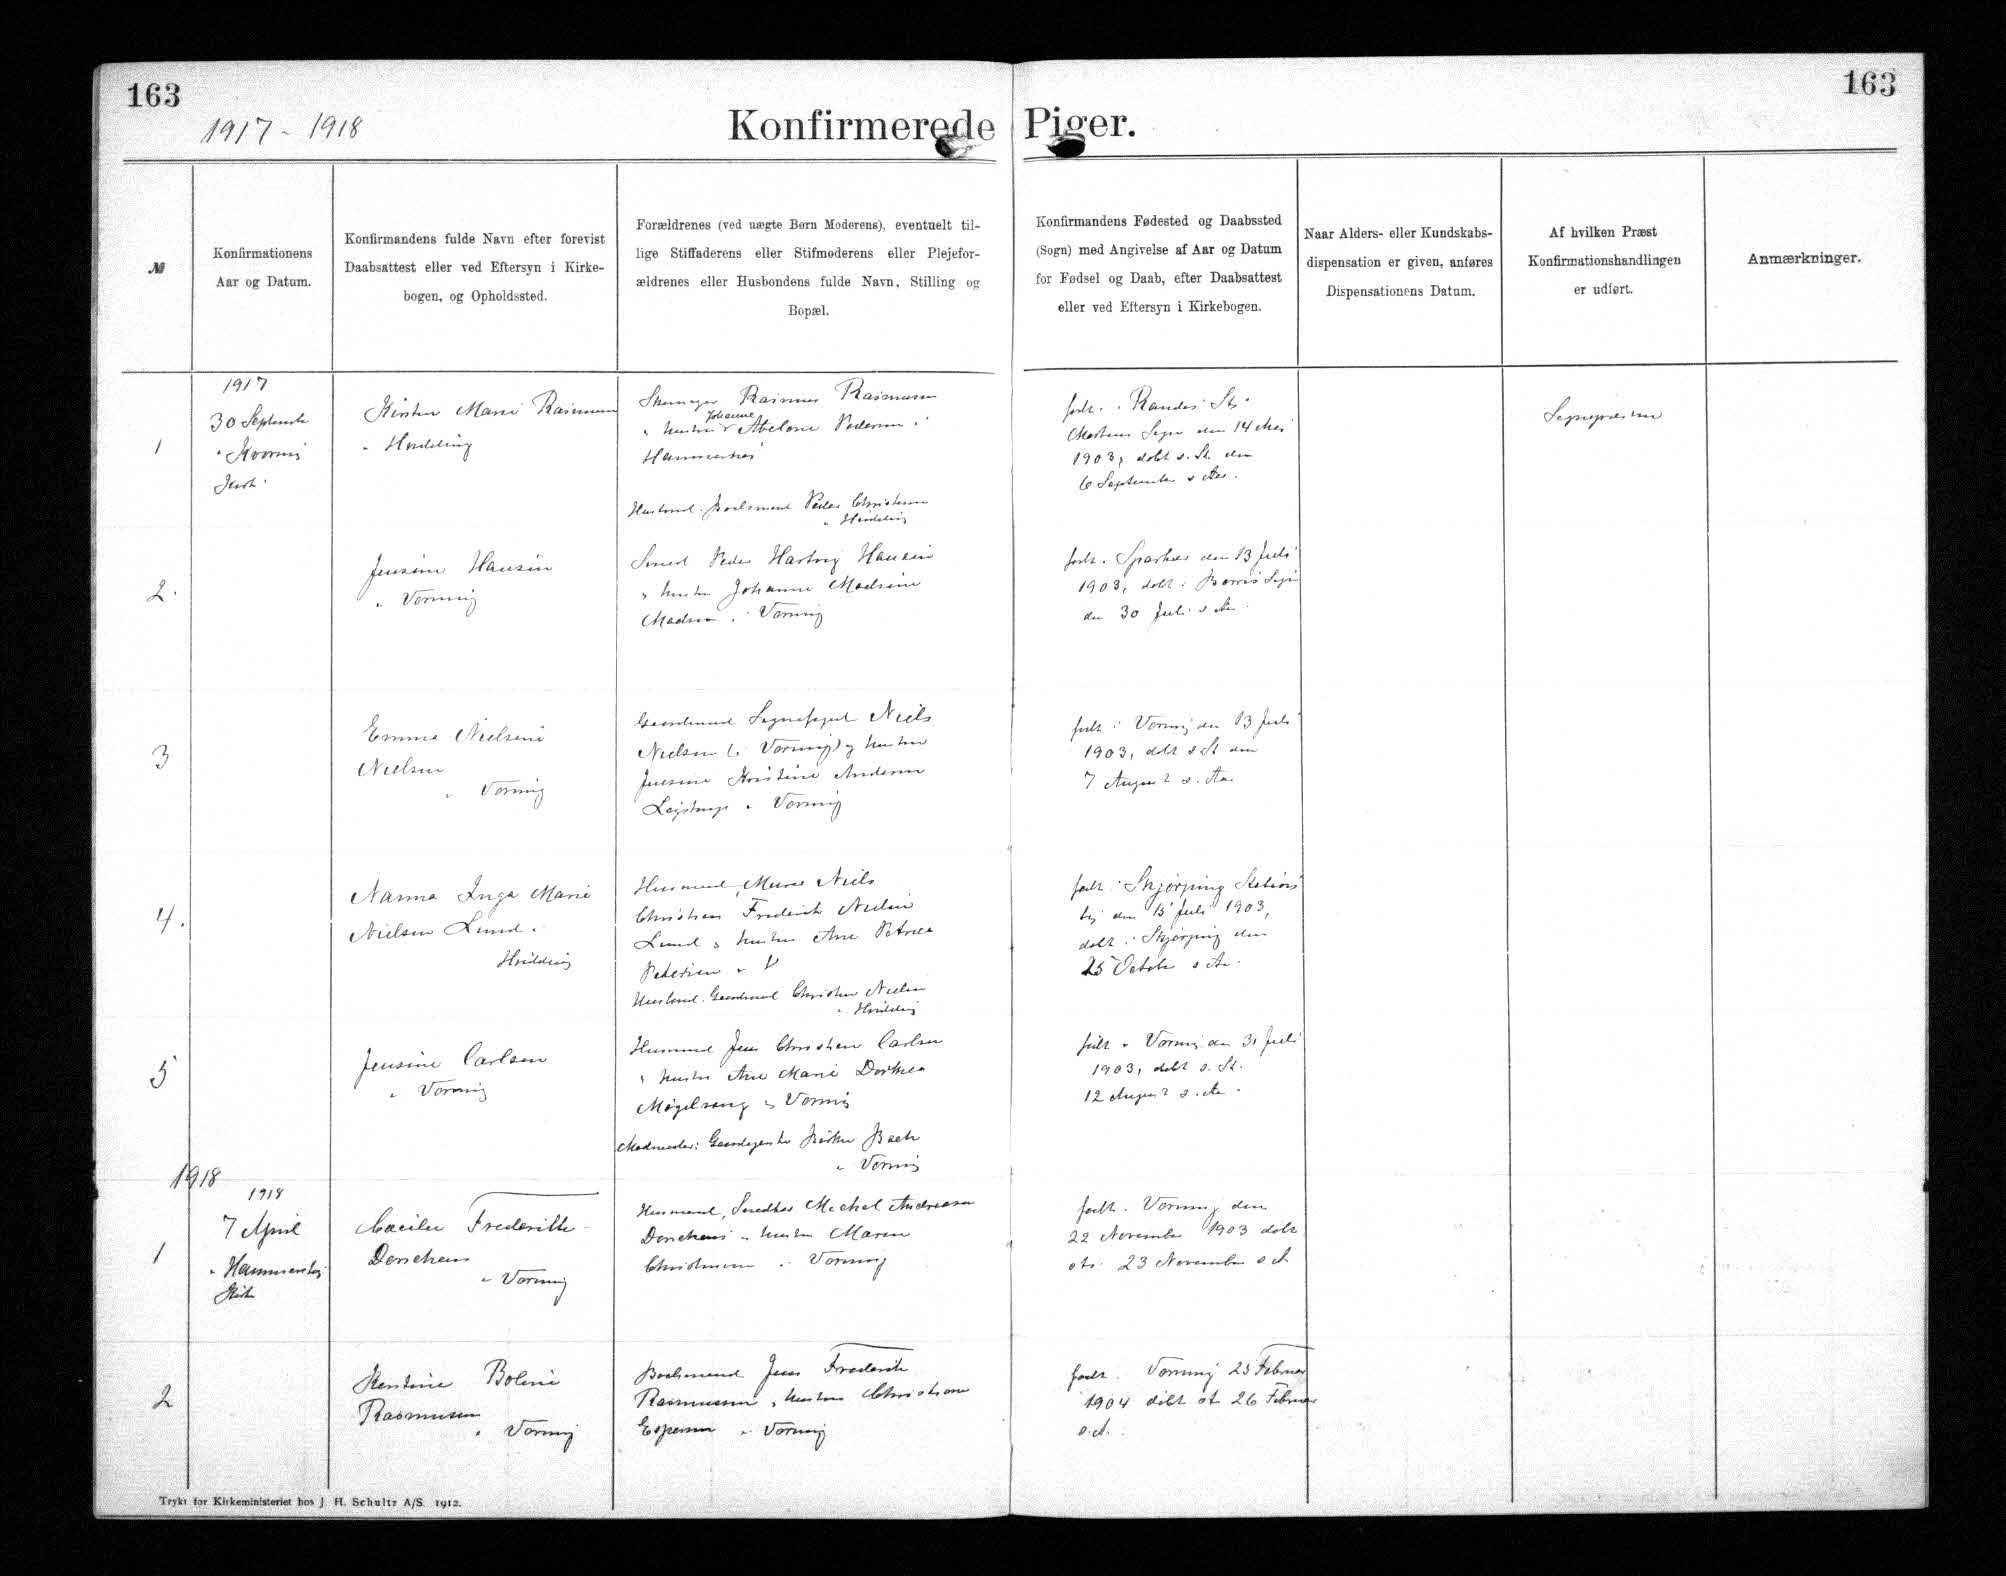 163
163
1917 - 1918
Konfirmerede Piger.
№
Konfirmationens
Aar og Datum.
Konfirmandens fulde Navn efter forevist
Daabsattest eller ved Eftersyn i Kirke-
bogen, og Opholdssted.
Forældrenes (ved uægte Børn Moderens), eventuelt til-
lige Stiffaderens eller Stifmoderens eller Plejefor-
ældrenes eller Husbondens fulde Navn, Stilling og
Bopæl.
Konfirmandens Fødested og Daabssted
(Sogn) med Angivelse af Aar og Datum
for Fødsel og Daab, efter Daabsattest
eller ved Eftersyn i Kirkebogen.
Naar Alders- eller Kundskabs-
dispensation er given, anføres
Dispensationens Datum.
Af hvilken Præst
Konfirmationshandlingen
er udført.
Anmærkninger.
1
1917
30 September
i Kvorning
Kirke
Kirsten Marie Rasmussen
i Hvidding
Rasmus Rasmussen
Johanne
Hustru Abelone Pedersen i
Hammershøi
Husbond. Boelsmand Peder Christensen
i Hvidding
født i Randers Sts
Mortens Sogn den 14 Mai
1903, døbt s. St. den
6 September s Aar.
Sognepræsten
2.
Jensine Hansen
i Vorning
Smed Peder Hartvig Hansen
og Hustru Johanne Madsine
Madsen i Vorning
født i Sparkær den 13 Juli
1903, døbt i Borris Sogn
den 30 Juli s Aar.
3
Emma Nielsine
Nielsen
i Vorning
Gaardmand Sognefoged Niels
Nielsen (i Vorning) og Hustru
Jensine Kristine Andersen
Lejstrup i Vorning
født i Vorning den 13 Juli
1903, døbt s St den
7 August s. Aar
4.
Nanna Inga Marie
Nielsen Lund.
Hvidding
Husmand, Murer Niels
Christian Frederik Nielsen
Lund og Hustru Ane Petrea
Petersen i V
Husbond. Gaardmand Christen Nielsen
i Hvidding
født i Skjørping Stations
by den 15 Juli 1903,
døbt i Skjørping den
25 October s Aar.
5
Jensine Carlsen
i Vorning
Husmand Jens Christian Carlsen
og Hustru Ane Marie Dorthea
Møgelvang i Vorning
Madmoder: Bach
i Vorning
født i Vorning den 31 Juli
1903, døbt s. St.
12 August s. Aar.
1918
1
1918
7 April
i Hammershøj
Kirke
Cæcilie Frederikke
Derichens
i Vorning
Husmand, Snedker Michel Andreasen
Derichens og Hustru Maren
Christensen i Vorning
født i Vorning den
22 November 1903 døbt
sts 23 November s A
2
Kerstine Boline
Rasmussen
i Vorning
Boelsmand Jens Frederik
Rasmussen og Hustru Christiane
Espersen i Vorning
født i Vorning 25 Februar
1904 døbt st 26 Februar
s. A.
Trykt for Kirkeministeriet hos J. H. Schultz A/S. 1912.